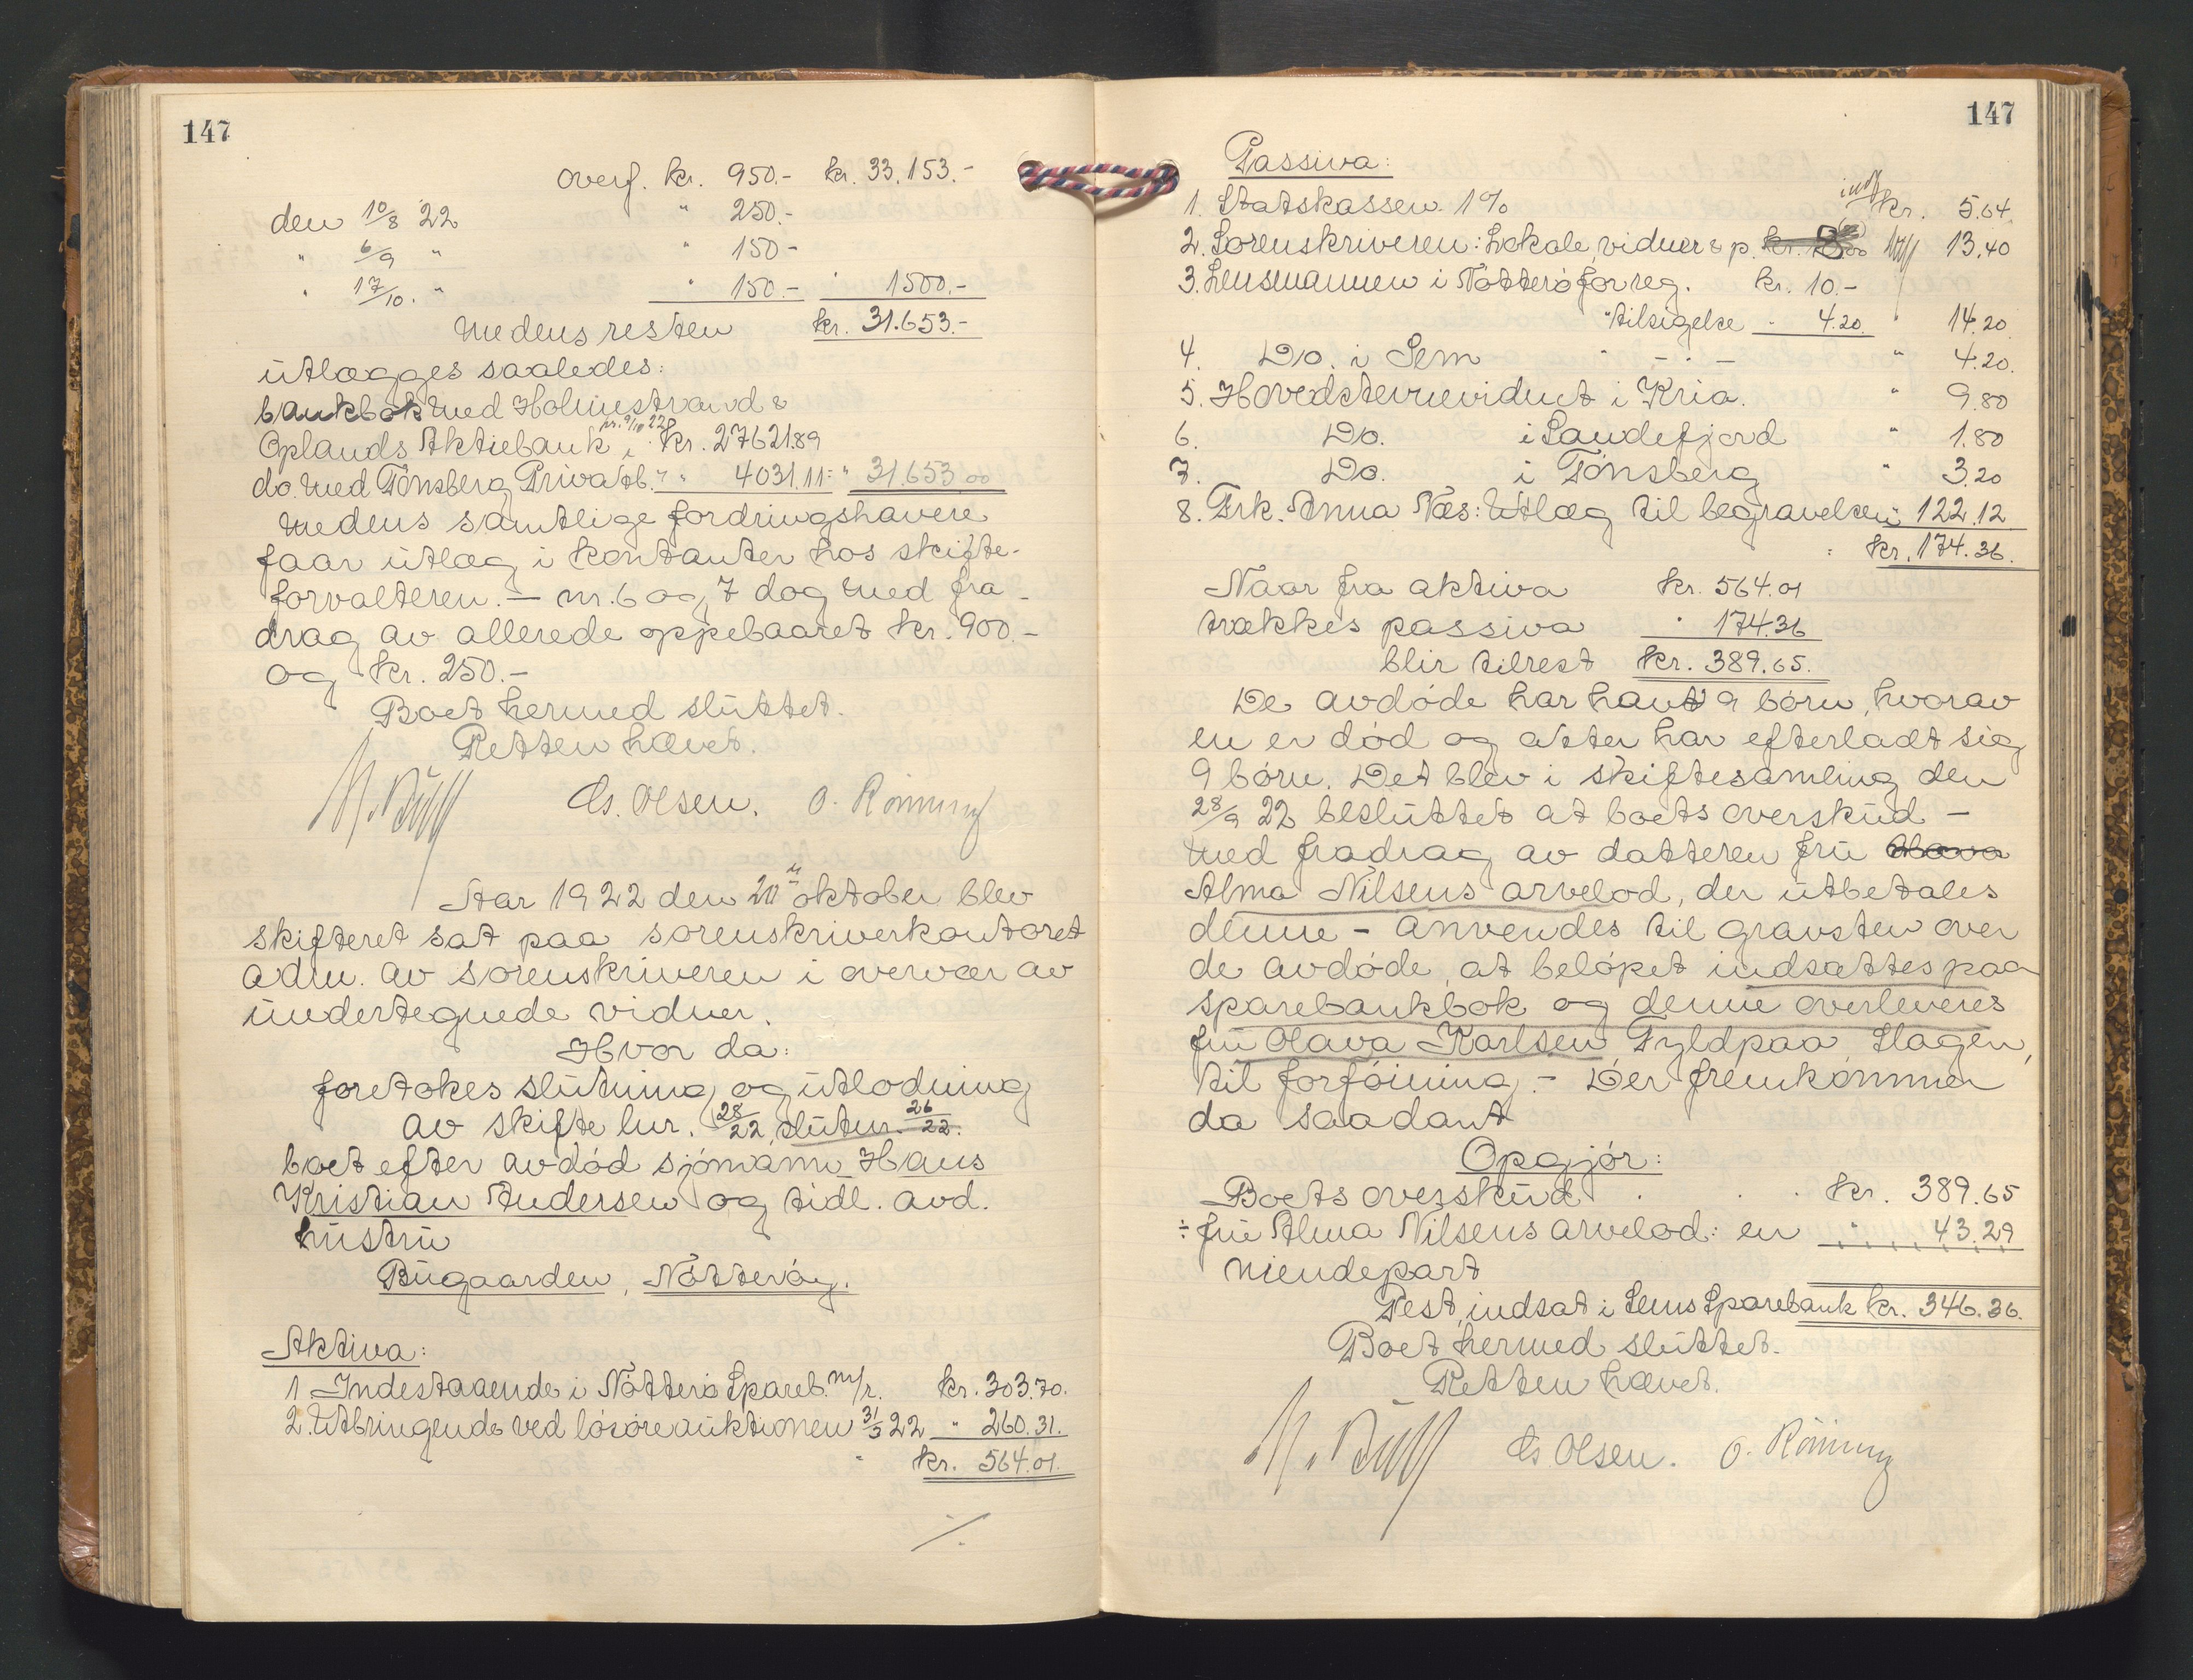 147
overf. kr. 950.- kr. 33.153.-
den 10/8 22 " 250.-
" 6/9 " " 150-
" 17/10. " " 150.- " 1500.-
medens resten kr. 31.653.-
utlægges saaledes:
bankbok med Holmestrand &
Oplands Aktiebank pr. 9/10 22 kr. 27621.89
do. med Tönsberg Privatb. " " 4031.11 = " 31.653.00
medens samtlige fordringshavere
faar utlæg i kontanter hos skifte-
forvalteren. — nr. 6 og 7 dog med fra-
drag av allerede oppebaaret kr. 900.-
og kr. 250.-
Boet hermed sluttet.
Retten hævet.
M. Bull Cs. Olsen. O. Rönning
Aar 1922 den 20 oktober blev
skifteret sat paa sorenskriverkontoret
adm. av sorenskriveren i overvær av
undertegnede vidner.
Hvor da:
foretokes slutning og utlodning
av skifte lnr. 28/22, slutn. 26/22.
boet efter avdød sjömann Hans
Kristian Andersen og tidl. avd.
hustru
Bugaarden, Nötteröy.
Aktiva:
1 Indestaaende i Nötterö Spareb. m/r. kr. 303.70.
2. Utbringende ved lösöreauktionen 31/3 22 " 260.31.
" kr. 564.01.
./.
147
Passiva:
1. Statskassen 1% kr. 5.64.
2. Sorenskriveren: Lokale, vidner & p. 13.40
3. Lensmannen i Nötterö for reg. kr. 10.-
" tilsigelse " 4.20. " 14.20
4. Do. i Sem " - " - " 4.20.
5. Hovedstevnevidnet i Kria. " 9.80
6. Do. i Sandefjord " 1.80
7. Do. i Tönsberg " 3.20
8. Frk. Anna Næs: Utlæg til begravelsen " 122.12
: kr. 174.36.
Naar fra aktiva kr. 564.01
trækkes passiva " 174.36
blir tilrest kr. 389.65.
De avdöde har havt 9 börn, hvorav
en er död og atter har efterladt sig
9 börn. Det blev i skiftesamling den
28/9 22 besluttet at boets overskud -
med fradrag av datteren fru Olava
Alma Nilsens arvelod, der utbetales
denne - anvendes til gravsten over
de avdöde, at belöpet indsættes paa
sparebankbok og denne overleveres
fru Olava Karlsen, Fyldpaa, Slagen,
til forföining. - Der fremkommer
da saadant
Opgjör:
Boets overskud . . . kr. 389.65
÷ fru Alma Nilsens arvelod: en " 43.29
niendepart
Rest, indsat i Sems Sparebank kr. 346.36.
Boet hermed sluttet.
Retten hævet.
M. Bull Cs. Olsen. O. Rönning